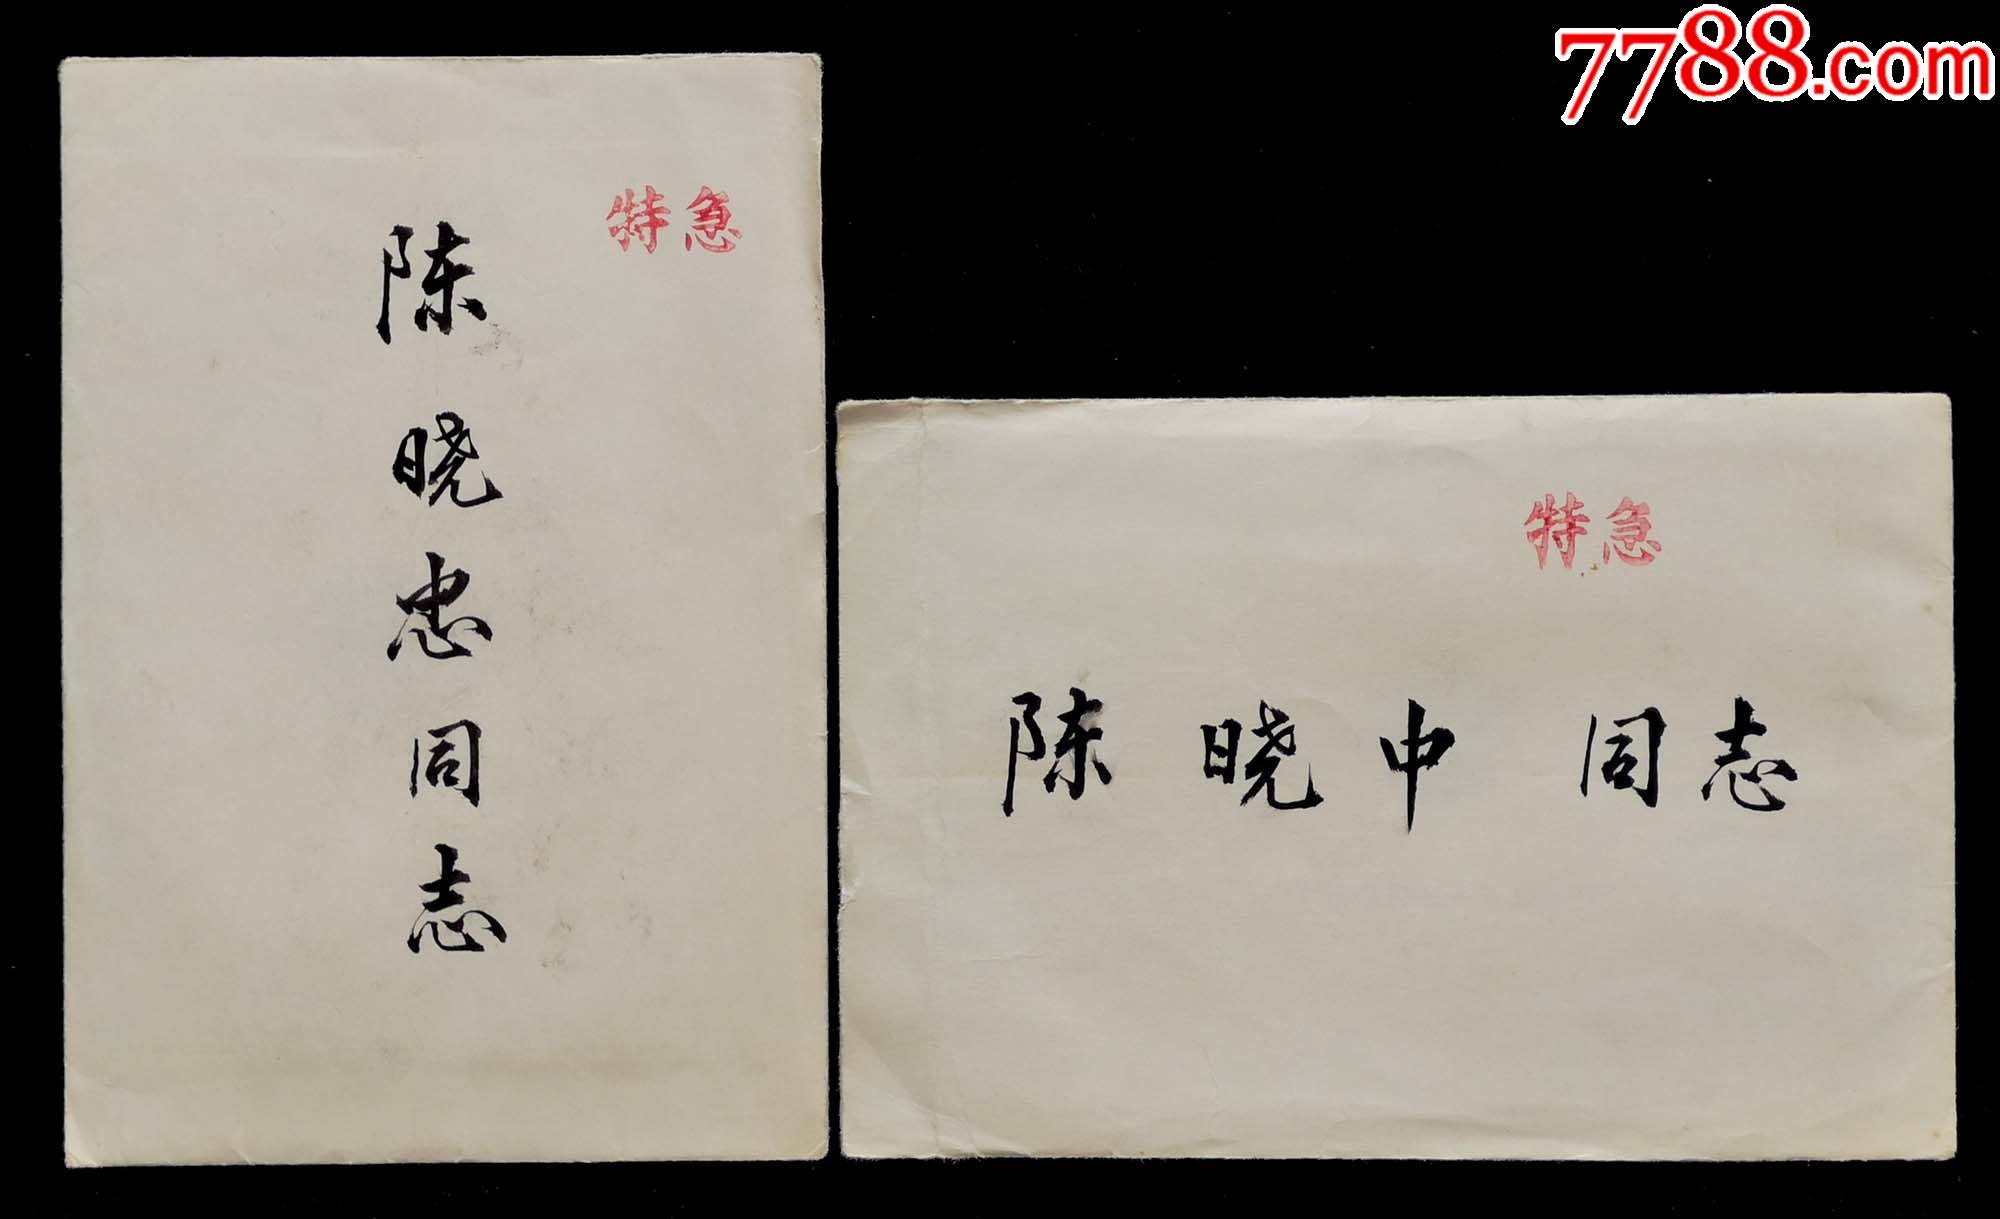 7788.com
特急
陈晓忠同志
特急
陈晓中同志